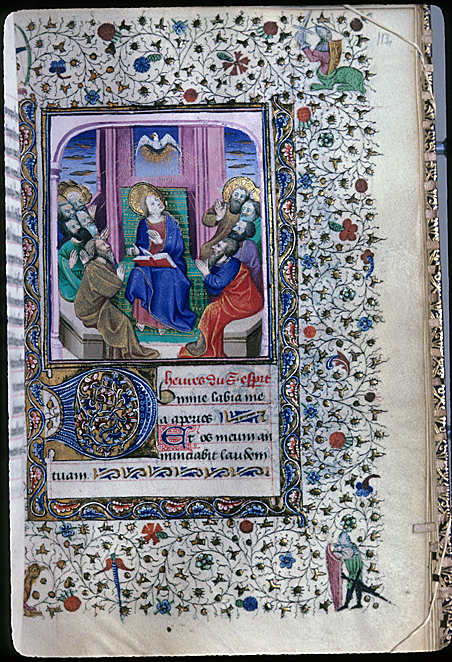 heures du S. esprit
Domine labia me
a aperies
Et os meum an
nunciabit laudem
tuam